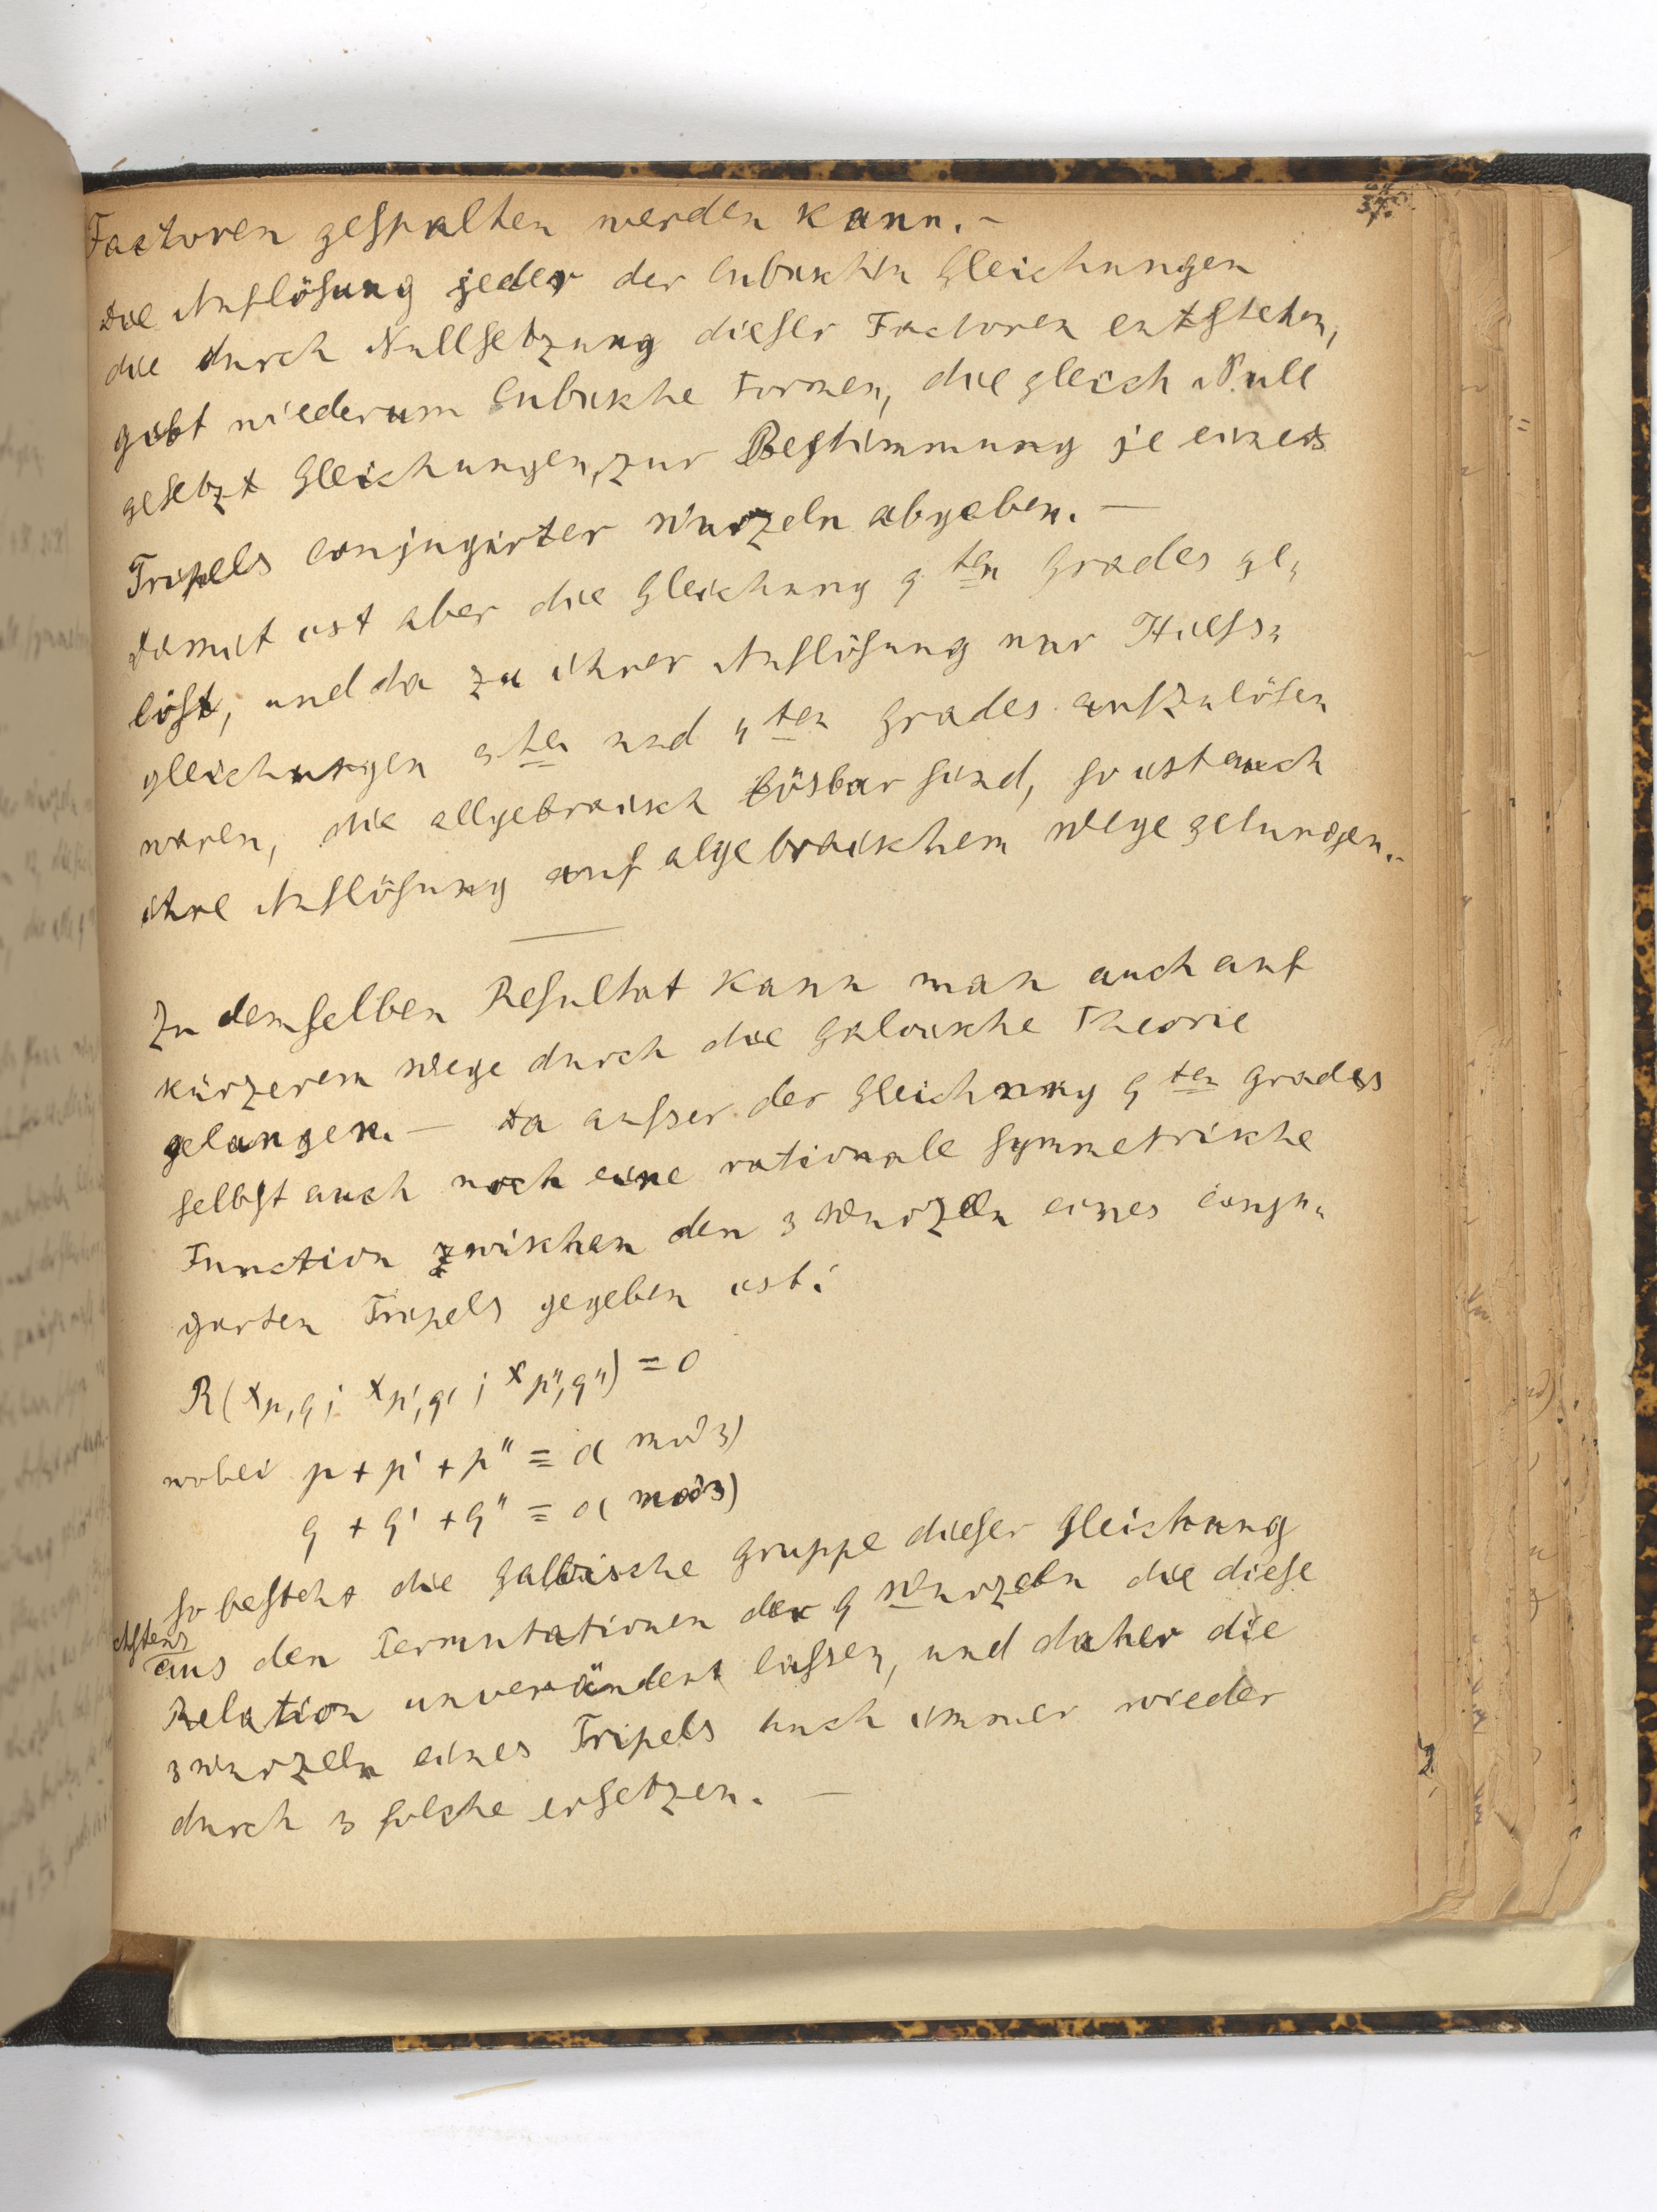 Factoren gespalten werden kann. –
Die Auflösung jeder der Cubischen Gleichungen
die durch Nullsetzung dieser Factoren entstehen,
gibt wiederum Cubische Formen, die gleich Null
gesetzt Gleichungen, zur Bestimmung je eines
Tripels conjugirter Wurzeln abgeben. –
Damit ist aber die Gleichung 9ten Grades ge-
löst, und da zu ihrer Auflösung nur Hilfs-
gleichungen 3ten und 4ten Grades aufzulösen
waren, die allgebraisch lösbar sind, so ist auch
ihre Auflösung auf algebraischem Wege gelungen. –
Zu demselben Resultat kann man auch auf
kürzerem Wege durch die Galoische Theorie
gelangen. – Da ausser der Gleichung 9ten Grades
selbst auch noch eine rationale symmetrische
Function zwischen den 3 Wurzeln eines conju-
girten Tripels gegeben ist:
R(x_{p,q}; x_{p',q'}; x_{p'',q''}) = 0
wobei p + p' + p'' ≡ 0( mod 3)
q + q' + q'' ≡ 0( mod 3)
so besteht die Galoische Gruppe dieser Gleichung
aus den Permutationen der 9 Wurzeln die diese
Relation unverändert lassen, und daher die
3 Wurzeln eines Tripels auch immer wieder
durch 3 solche ersetzen. –